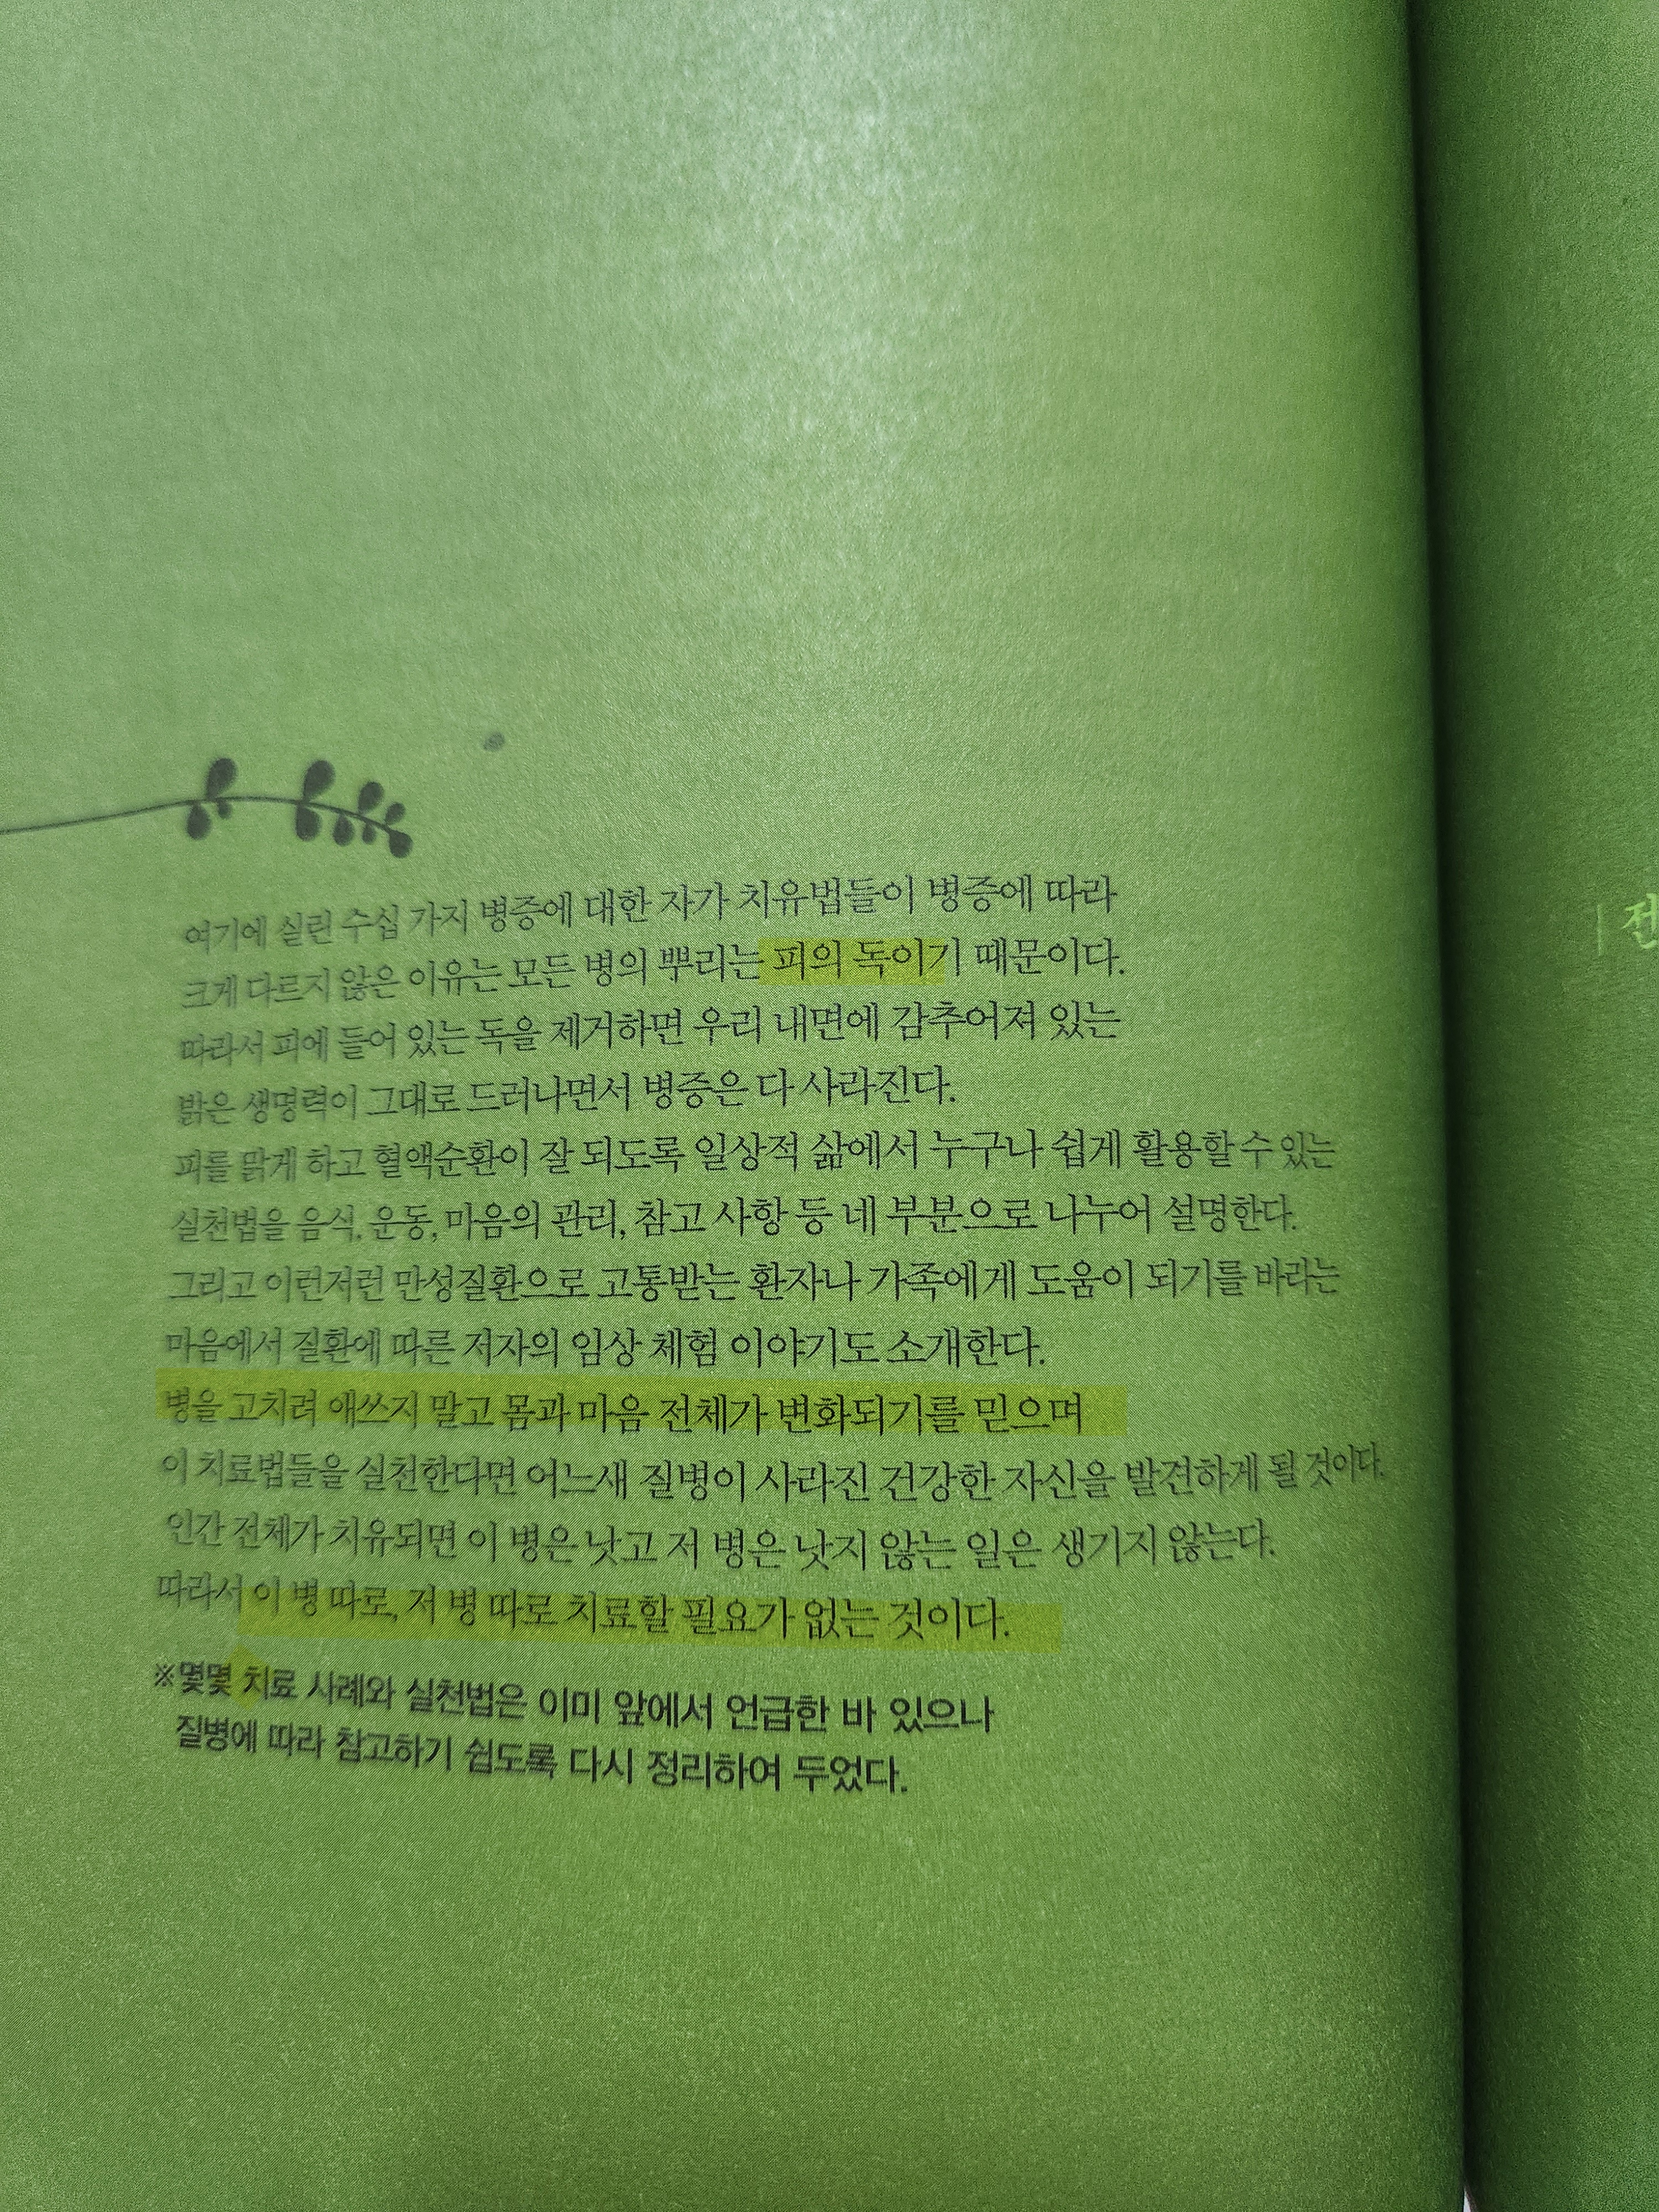 여기에 실린 수십 가지 병증에 대한 자가 치유법들이 병증에 따라
크게 다르지 않은 이유는 모든 병의 뿌리는 피의 독이기 때문이다.
따라서 피에 들어 있는 독을 제거하면 우리 내면에 감추어져 있는
밝은 생명력이 그대로 드러나면서 병증은 다 사라진다.
피를 맑게 하고 혈액순환이 잘 되도록 일상적 삶에서 누구나 쉽게 활용할 수 있는
실천법을 음식, 운동, 마음의 관리, 참고 사항 등 네 부분으로 나누어 설명한다.
그리고 이런저런 만성질환으로 고통받는 환자나 가족에게 도움이 되기를 바라는
마음에서 질환에 따른 저자의 임상 체험 이야기도 소개한다.
병을 고치려 애쓰지 말고 몸과 마음 전체가 변화되기를 믿으며
이 치료법들을 실천한다면 어느새 질병이 사라진 건강한 자신을 발견하게 될 것이다.
인간 전체가 치유되면 이 병은 낫고 저 병은 낫지 않는 일은 생기지 않는다.
따라서 이 병 따로, 저 병 따로 치료할 필요가 없는 것이다.
※몇몇 치료 사례와 실천법은 이미 앞에서 언급한 바 있으나
질병에 따라 참고하기 쉽도록 다시 정리하여 두었다.